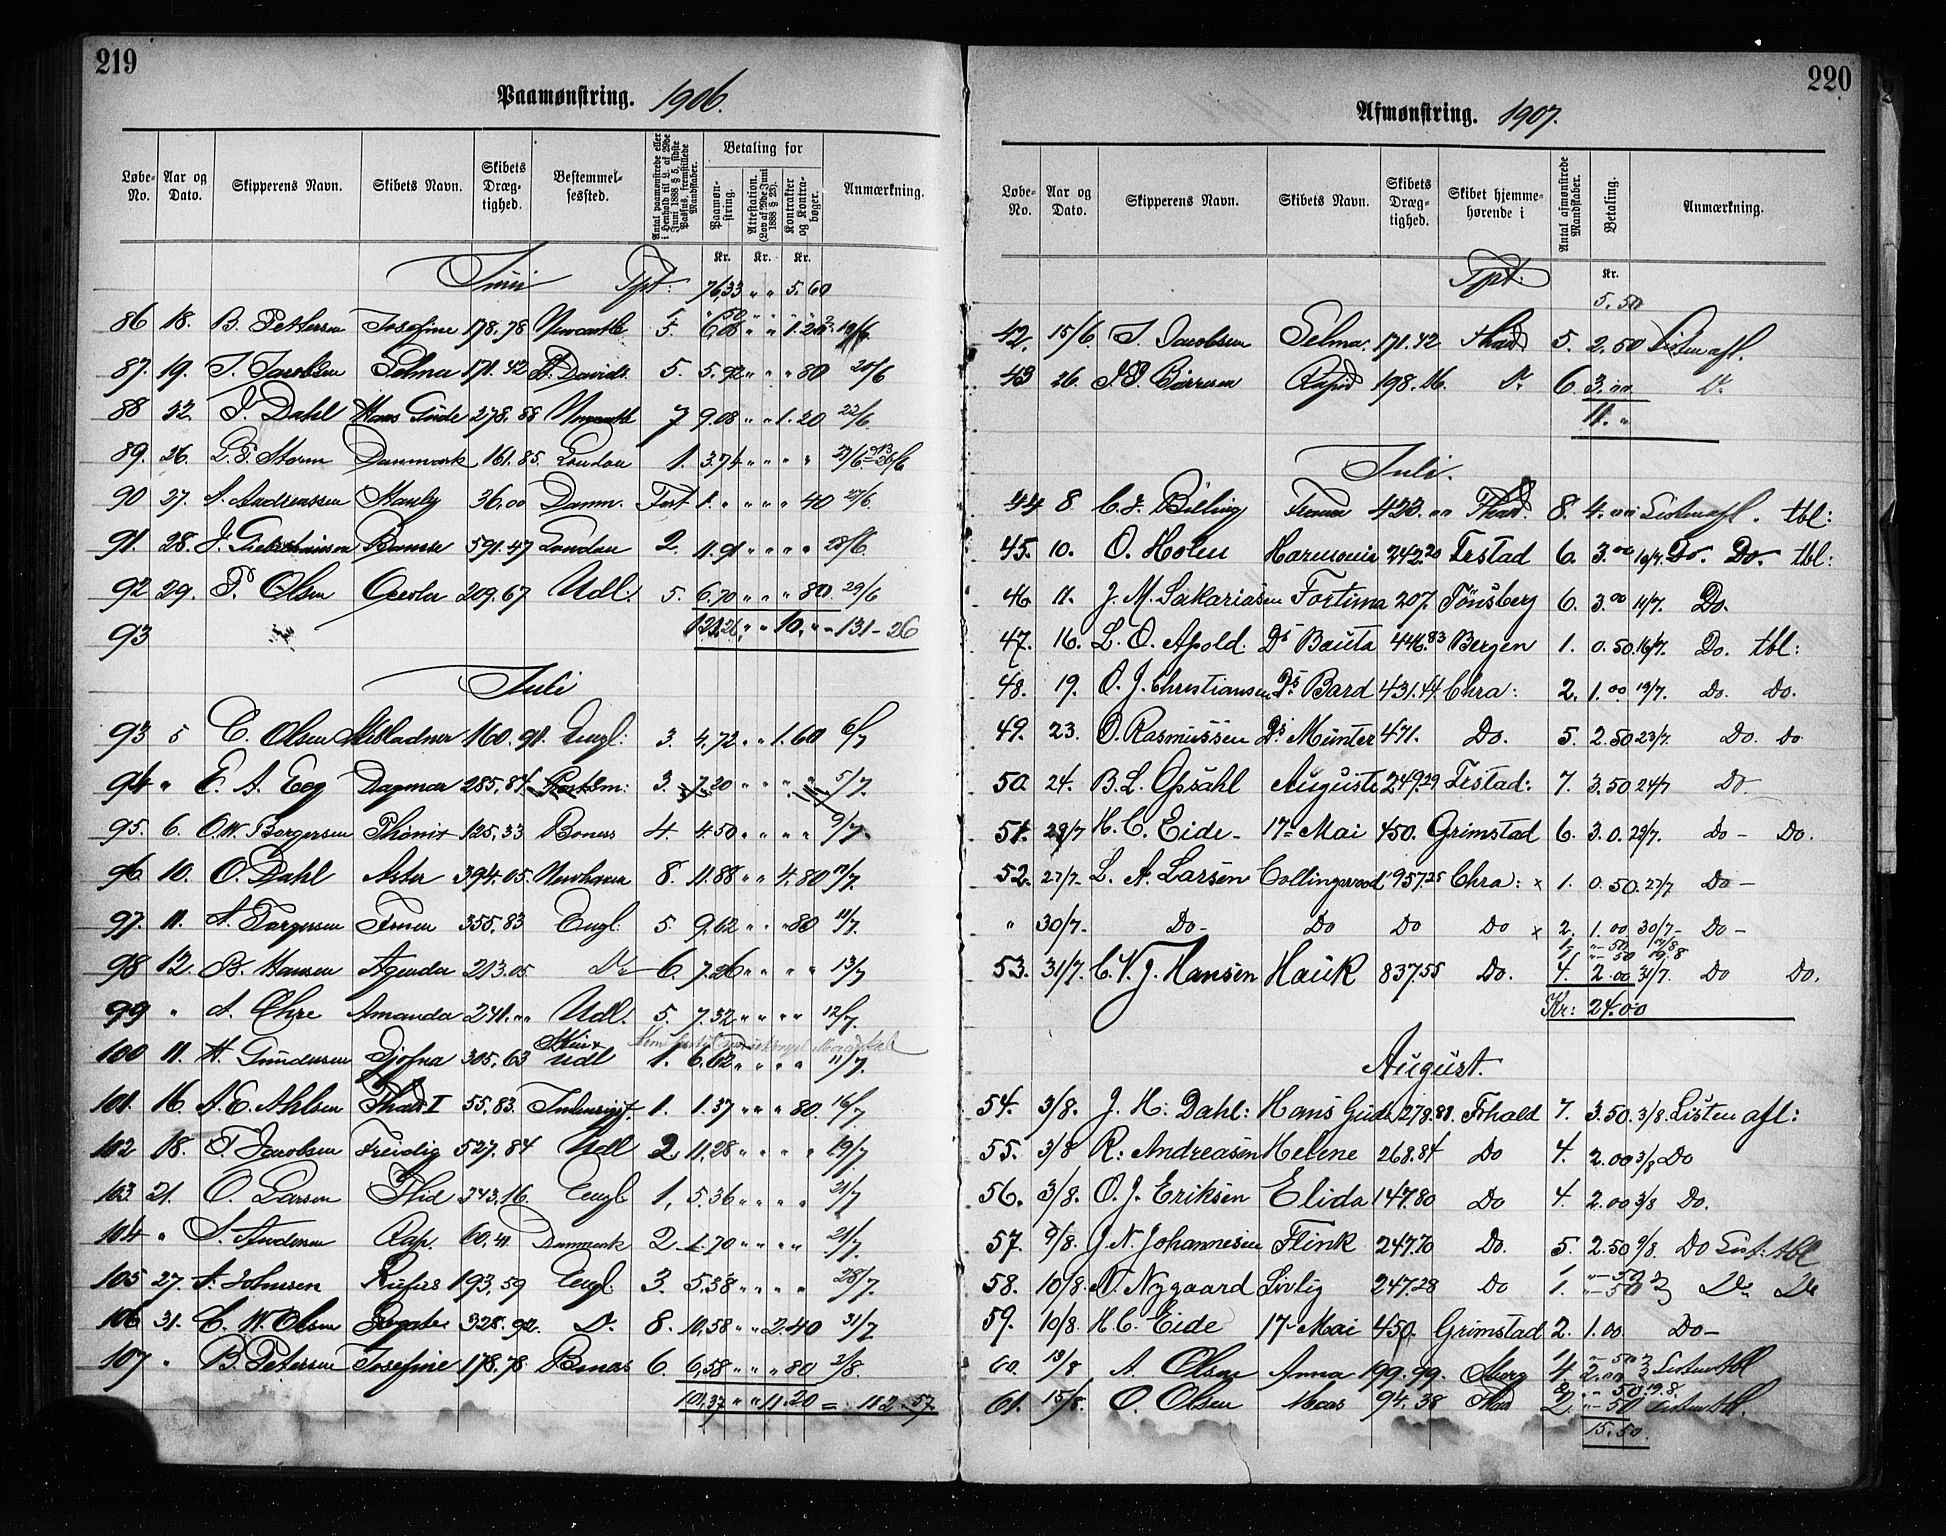 219
Paamønstring. 1906.
Løbe-No. Aar og Dato. Skipperens Navn. Skibets Navn. Skibets Dræg-tighed. Bestemmel-sessted. Antal paamønstrede eller i Henhold til L. af 29de Juni 1888 § 5, sidste Passus, fremstillede Mandskaber. Betaling for Paamøn-string. Attestation. (Lov af 29de Juni 1888 § 23). Kontrakter og Kontra-bøger. Anmærkning.
Kr. Kr. Kr.
Juni Tpt: 76,33 " " 5.60
86 18. B. Pettersen Josefine 178.78 Newcastle 5. 6,08 " " 1.20 19/6
87. 19. T. Jacobsen Selma 171.42 St. Davids 5. 5.92 " " " 80 20/6
88 22. J. Dahl Hans Gude 278.88 Newcastle 7 9.08 " " 1.20 22/6
89. 26. L. F. Storm Danmark 161.85. London 1. 3.74 " " " " 27/6
90 27. A. Andreassen Stanly 36.00 Danm. Fort 1. " " " " 40 27/6.
91. 28. J. 591.47 London 2. 11.91 " " " " 28/6.
92 29. P. Olsen 209.67 Udl. 5. 6.70 " " " 80. 29/6
93 121,26, " " 10, " - 131-26
Juli
93 5 C. Olsen 160.91. Engl: 3. 4.72 " " 1.60 6/7
94 " E. A. Eeg Dagmar 285.84 3. 7.20 " " " " 5/7.
95. 6. O. W. Borgersen Phønix 125.33 Boness 4. 4.50 " " " " 9/7.
96 10. O. Dahl Aster 394.05. Newhaven 8. 11.88 " " 4.80 12/7.
97. 11. A. Torgersen 355.83 Engl. 5. 9.62 " " " 80 11/7.
98 12. B. Hansen Agenda 213.05 Do 6. 7.26 " " " " 13/7
99 " A. Ohre Amanda 241. " " Udl. 5. 7.32 " " " " 12/7.
100 11. H. Gundersen Gjøfna 305.63 Udl 1. 6.62 " " " " 11/7.
101. 16. A. E. Ahlsen Fhald I 55.83. 1. 1.37 " " " 80. 16/7.
102 18. T. Jacobsen Freidig 527.84 Udl 2 11,28 " " " " 19/7.
103 21. O. Larsen 343.16. Engl. 1, 5.36 " " " " 21/7
104 " A. Andersen Rap. 60.41 Danmark 2. 1.70 " " " " 21/7.
105 27. A. Johnsen Rufus 193.59 Engl. 3. 5.38 " " " " 28/7.
106 31. C. W. Olsen 328.92. Do. 8. 10,58 " " 2.40 31/7
107 " B. Petersen Josefine 178.78 6. 6,58 " " " 80 2/8.
101,37 " " 11.20 = 112.57

220
Afmønstring. 1907.
Løbe-No. Aar og Dato. Skipperens Navn. Skibets Navn. Skibets Dræg-tighed. Skibet hjemme-hørende i Antal afmønstrede Mandskaber. Betaling. Anmærkning.
Kr.
Tpt. 5.50
42. 15/6. T. Jacobsen Selma. 171.42 Fhald. 5. 2.50 Listen afl.
43 26. Rapid 198.16. Do 6. 3,00. Do.
11. "
Juli.
44 8. C. F. Billing 423. " " Fhald. 8. 4.00 Listen afl. tbl:
45. 10. O. Holm Harmonia 242.20 Frstad 6. 3.00 10/7. Do. Do. tbl:
46 11. J. M. Sakariasen Fortuna 207. Tönsberg 6. 3.00 11/7. Do.
47. 16. L. O. Apold. Ds Bauta 446.83 Bergen 1. 0.50. 16/7. Do. tbl:
48. 19. O. J. Christiansen Ds Bard 431.44 Chra: 2. 1.00 19/7. Do. Do.
49. 23. O. Rasmussen Ds Münter 471. Do. 5. 2.50 23/7. Do. Do
50. 24. B. L. Opsahl Auguste 249.29 Frstad: 7. 3.50 24/7 Do
51. 29/7 H. C. Eide- 17de Mai 450. Grimstad 6. 3.0. 29/7. Do- Do.
52. 27/7- L. A. Larsen Collingwood 957.25 Chra: x 1. 0.50. 27/7 Do-
" 30/7- Do- Do Do Do x 2. 1.00 30/7- Do-
1. "-50 14/8
1. "-50 19.8
53. 31/7. C. V. J. Hansen Hauk 837.55 Do. 4. 2.00 31/7. Do Do.
Kr: 24.00
August.
54. 3/8. J. H. Dahl: Hans Gude 278.88. Frhald 7. 3.50. 3/8. Listen afl:
55. 3/8 R. Andreasen Helene 268.84 Do 4. 2.00 3/8 Do
56. 3/8. O. J. Eriksen Elida 147.80 Do 4. 2.00 3/8 Do.
57. 9/8. J. N. Johannesen Flink 247.70 Do. 5. 2.50 9/8. Do List. tbl
1 "-50
58. 10/8. N. Nygaard Livlig 247.28 Do 1. "-50 Do Do
59. 10/8. H. C. Eide 17de Mai 450. Grimstad 2. 1.00. Do-
1. "-50
60. 13/8 A. Olsen Anna 199.99. 4 2.00 Listen tbl
2. "-50. 19.8.
61. 15/8. O. Olsen 94.38 Fhald 2. "-50 Listen tbl.
15.50.